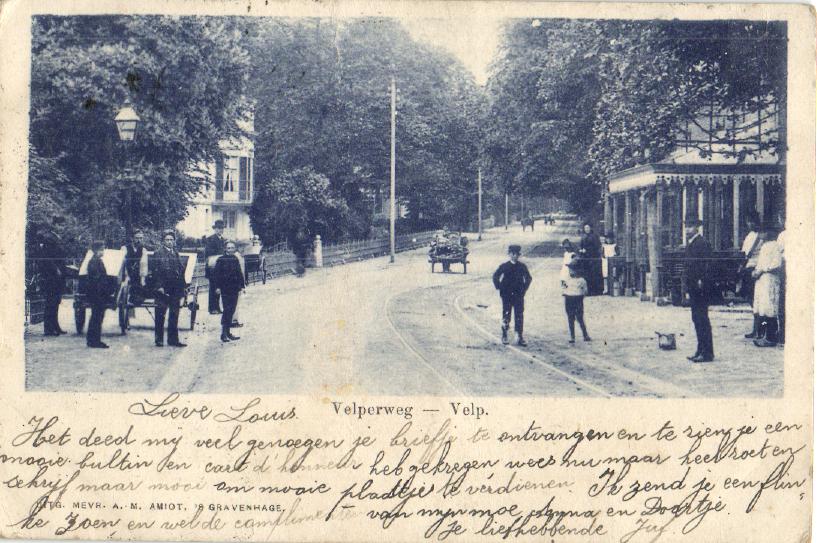 Lieve Louis
Velperweg — Velp.
Het deed mij veel genoegen je briefje te ontvangen en te zien je een
mooie bultin en cart d'honneur heb gekregen wees nu maar heel zoet en
schrijf maar mooi om mooie plaatjes te verdienen. Ik zend je een flin
UITG. MEVR. A. M. AMIOT, 'S GRAVENHAGE,
ke zoen en wel de complimenten van mijn moe, Anna en Doortje.
Je liefhebbende Juf.